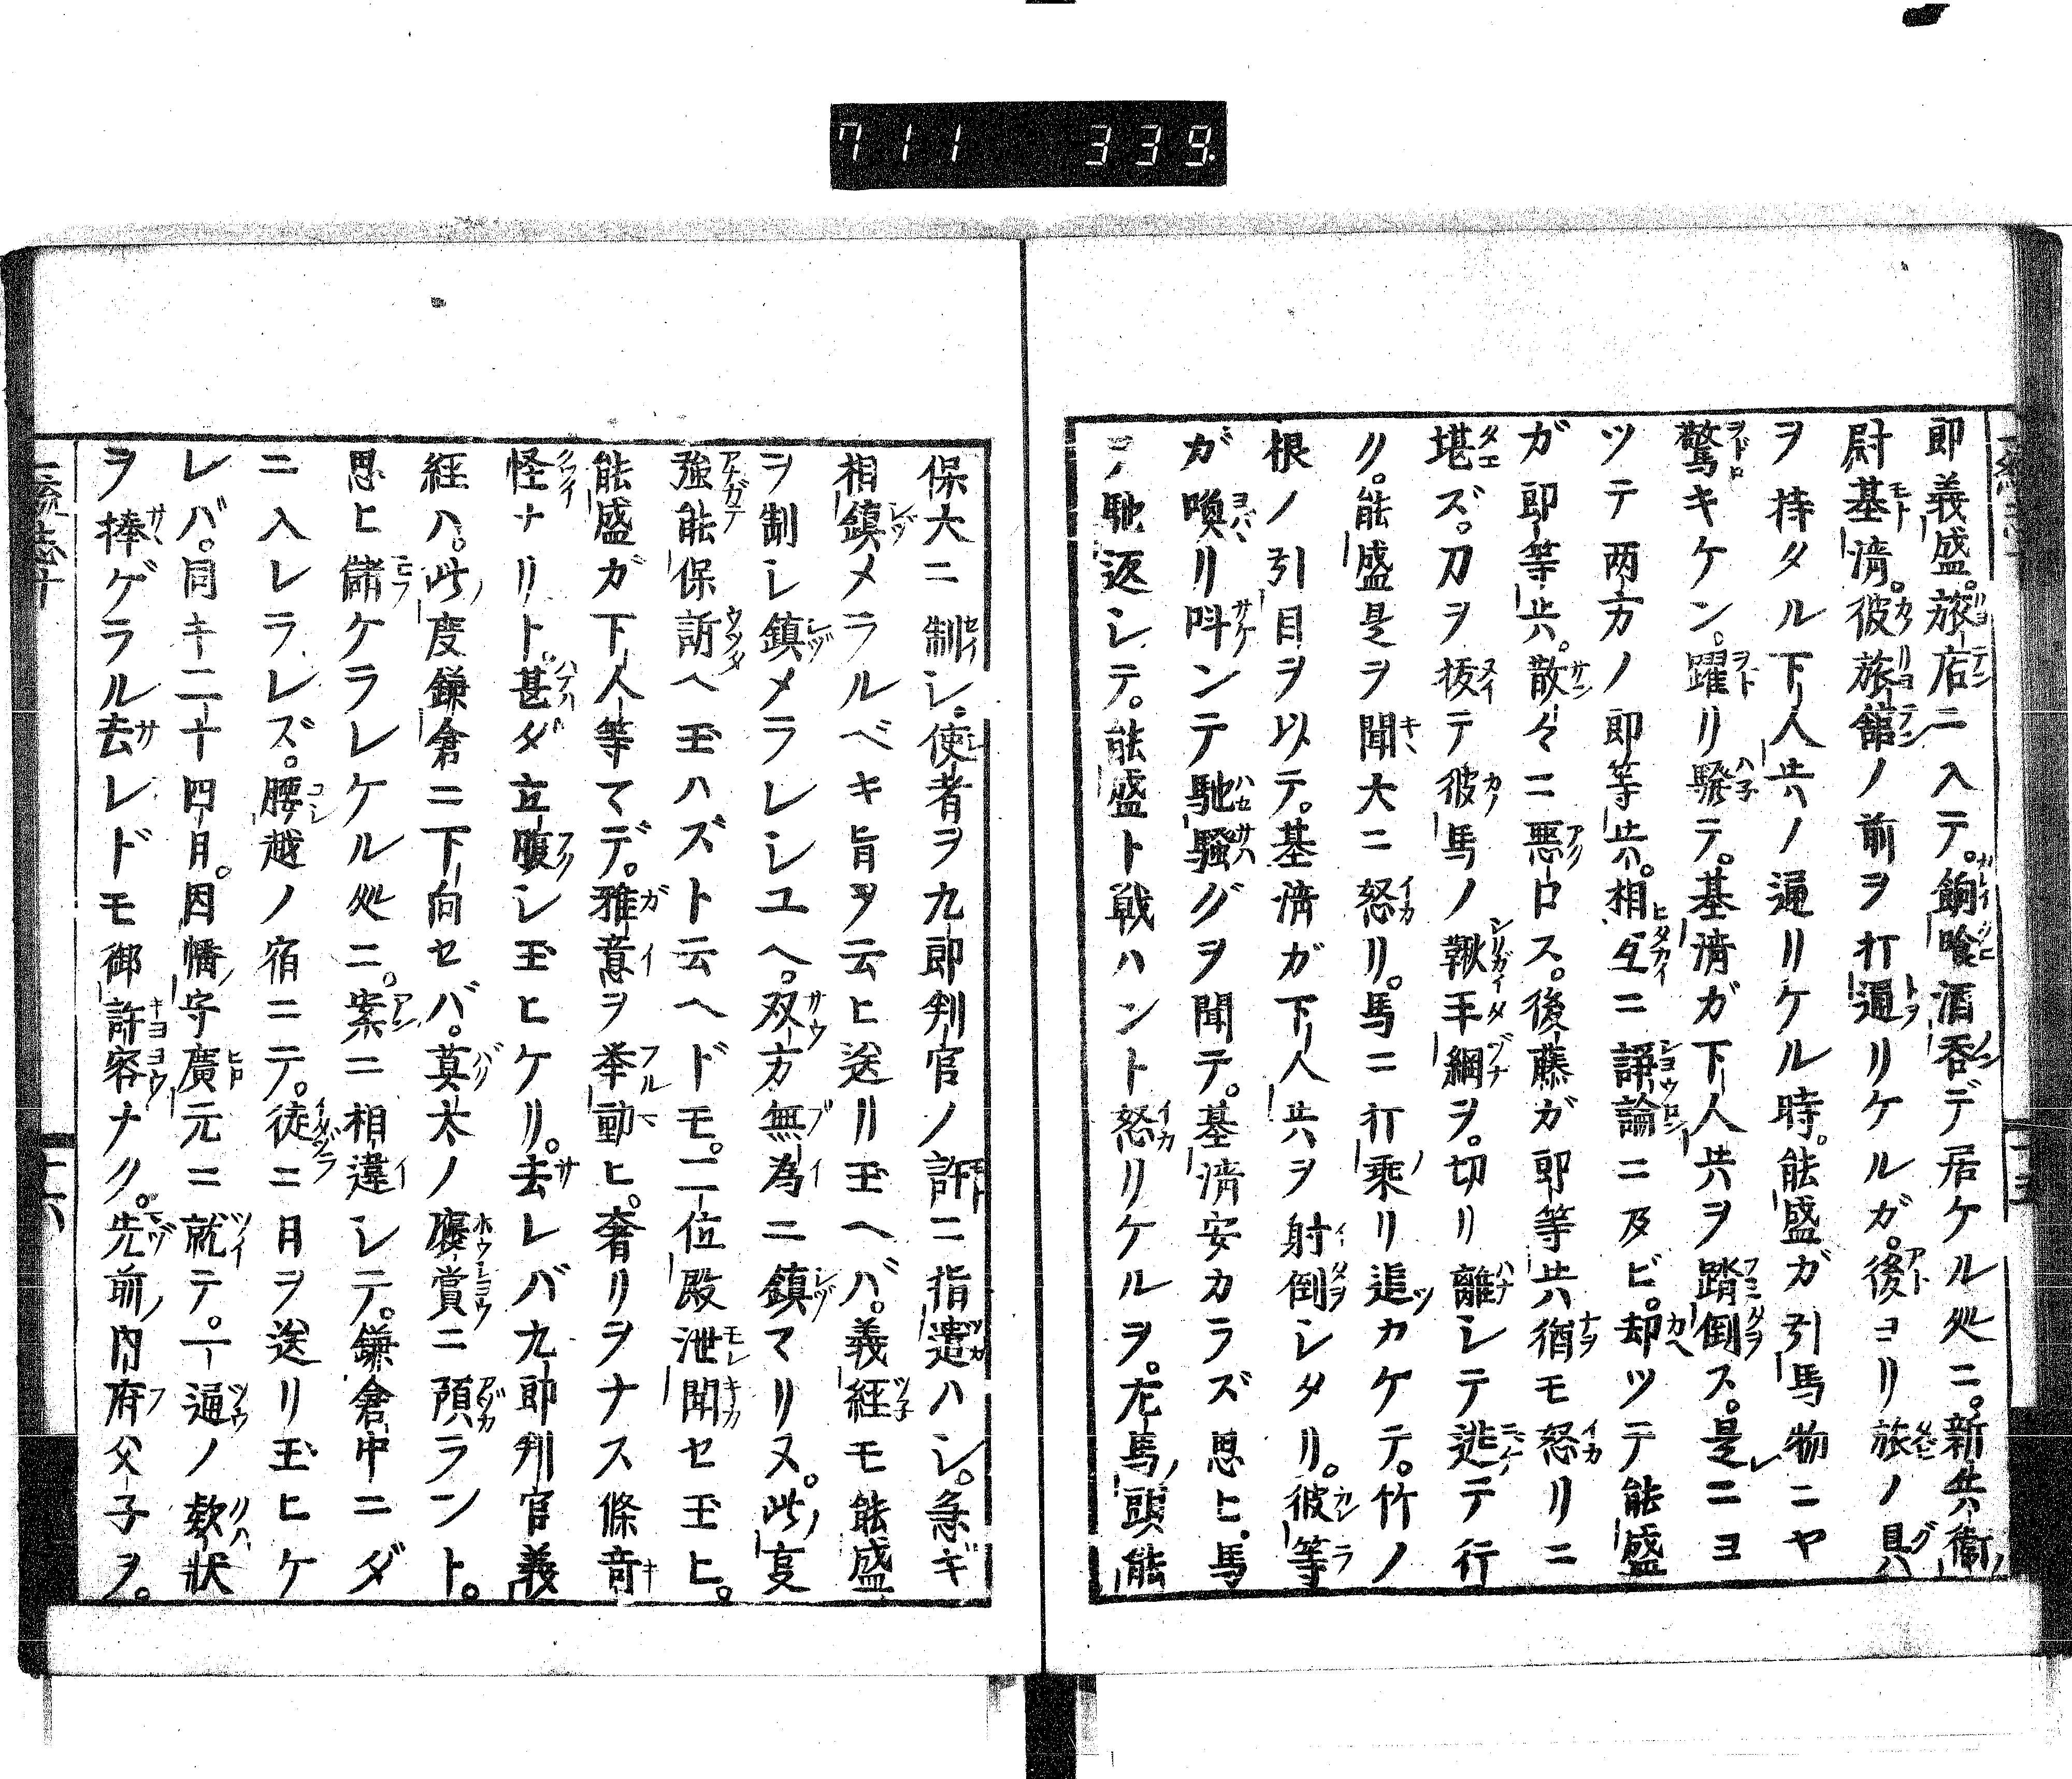 711 339
即義盛。旅店ニ入テ。餉喰酒呑デ居ケル処ニ。新兵衛
尉基清。彼旅館ノ前ヲ打通リケルガ。後ヨリ旅ノ具
ヲ持タル下人共ノ通リケル時。能盛ガ引馬物ニヤ
驚キケン。躍リ發テ。基清ガ下人共ヲ踏倒ス。是ニヨ
ツテ両方ノ即等共。相互ニ諍論ニ及ビ。却ツテ能盛
ガ即等共。散々ニ悪口ス。後藤ガ即等共猶モ怒リニ
堪ズ。刀ヲ抜テ彼馬ノ鞦手綱ヲ。切リ離レテ逃テ行
ク。能盛是ヲ聞大ニ怒リ。馬ニ打乗リ追カケテ。竹ノ
根ノ引目ヲ以テ。基清ガ下人共ヲ射倒シタリ。彼等
ガ喚リ呌ンテ馳騒グヲ聞テ。基清安カラズ思ヒ。馬
ヲ馳返シテ。能盛ト戦ハント怒リケルヲ。左馬頭能
保大ニ制シ。使者ヲ九即判官ノ許ニ指遣ハシ。急ギ
相鎮メラルベキ旨ヲ云ヒ送リ玉ヘバ。義経モ能盛
ヲ制シ鎮メラレシユヘ。双方無為ニ鎮マリヌ。此叓
強能保訴ヘ玉ハズト云ヘドモ。二位殿泄聞セ玉ヒ。
能盛ガ下人等マデ。雅意ヲ挙動ヒ。奢リヲナス條竒
怪ナリト。甚ダ立腹シ玉ヒケリ。去レバ九即判官義
経ハ。此度鎌倉ニ下向セバ。莫太ノ褒賞ニ預ラント。
思ヒ儲ケラレケル処ニ。案ニ相違シテ。鎌倉中ニダ
ニ入レラレズ。腰越ノ宿ニテ。徒ニ月ヲ送リ玉ヒケ
レバ。同キ二十四月。因幡守廣元ニ就テ。一通ノ欵状
ヲ捧ゲラル去レドモ御許容ナク。先前内府父子ヲ。